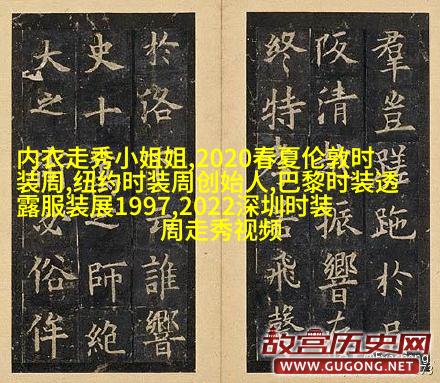 羣豈蹉跎於
阪清振響
終特飛聲
於洛誰響
史十之師絕
大之俗侔
内衣走秀小姐姐,2020春夏伦敦时
装周,纽约时装周创始人,巴黎时装透
露服装展1997,2022深圳时装
周走秀视频
故宫历史网
WWW.GUGONG.NET